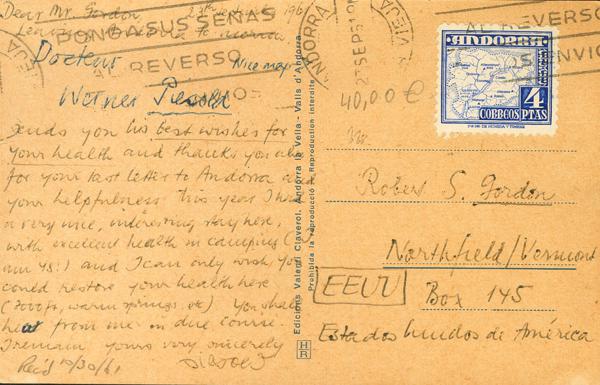 Dear Mr. Gordon, 25th sept. 196
Leaving Andorra to morrow
Nice map
Docteur
Werner
sends you his best wishes for
your health and thanks you also
for your last letter to Andorra a
your helpfulness. This year I had
a very nice, interesting stay here,
with excellent health in camping (
am 45!) and I can only wish you
could restore your health here
(7000 ft, warm springs, etc) You shall
hear from me in due course.
I remain yours very sincerely
Rec'd 10/30/61
PONGA SUS SEÑAS
AL REVERSO
ANDORRA
VIEJA
SEP 61
AL REVERSO
OS ENVIO
ANDORRA
CORREOS
4
PTAS
40,00 €
Edicions Valentí Claverol. Andorra la Vella - Valls d'Andorra
Prohibida la reproducció - Reproduction interdite
HR
Robert S. Gordon
Northfield/Vermont
Box 145
EEUU
Estados Unidos de América